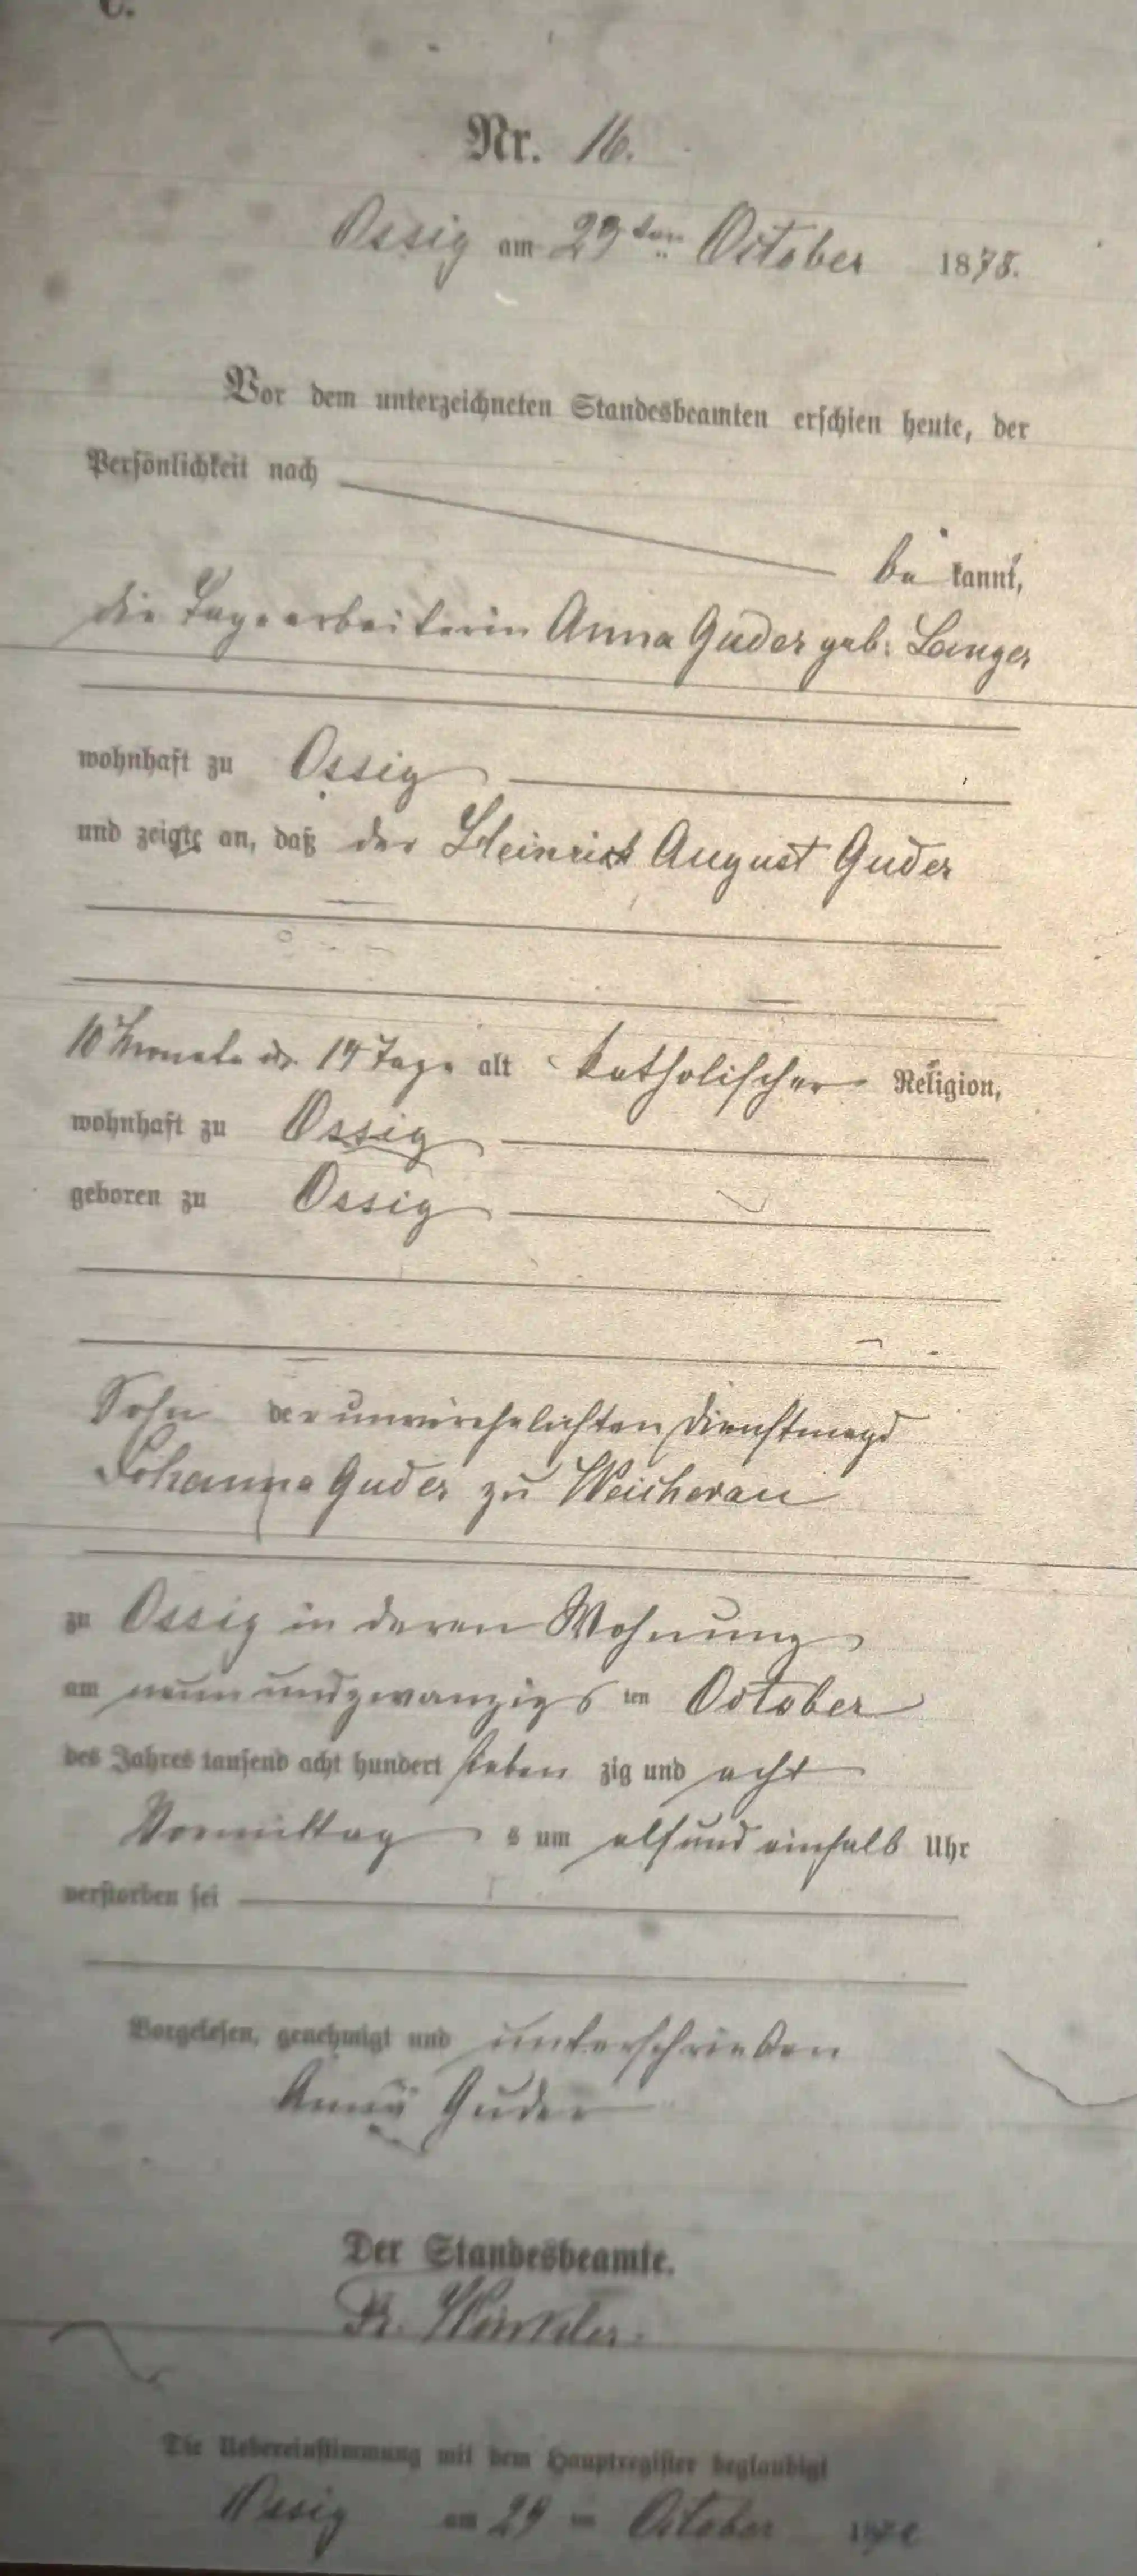 C.
Nr. 16.
Ossig am 29ten October 1878.
Vor dem unterzeichneten Standesbeamten erschien heute, der
Persönlichkeit nach
be kannt,
die Tagearbeiterin Anna Guder geb. Langer
wohnhaft zu Ossig
und zeigte an, daß der Heinrich August Guder
10 Monate 14 Tage alt katholischer Religion,
wohnhaft zu Ossig
geboren zu Ossig
Sohn der unverehelichten Dienstmagd
Johanna Guder zu Weicherau
zu Ossig in deren Wohnung
am neunundzwanzigs ten October
des Jahres tausend acht hundert sieben zig und acht
Vormittag s um elf und einhalb Uhr
verstorben sei
Vorgelesen, genehmigt und unterschrieben
Anna Guder
Der Standesbeamte.
Winkler.
Die Uebereinstimmung mit dem Hauptregister beglaubigt
Ossig am 29 October 1878